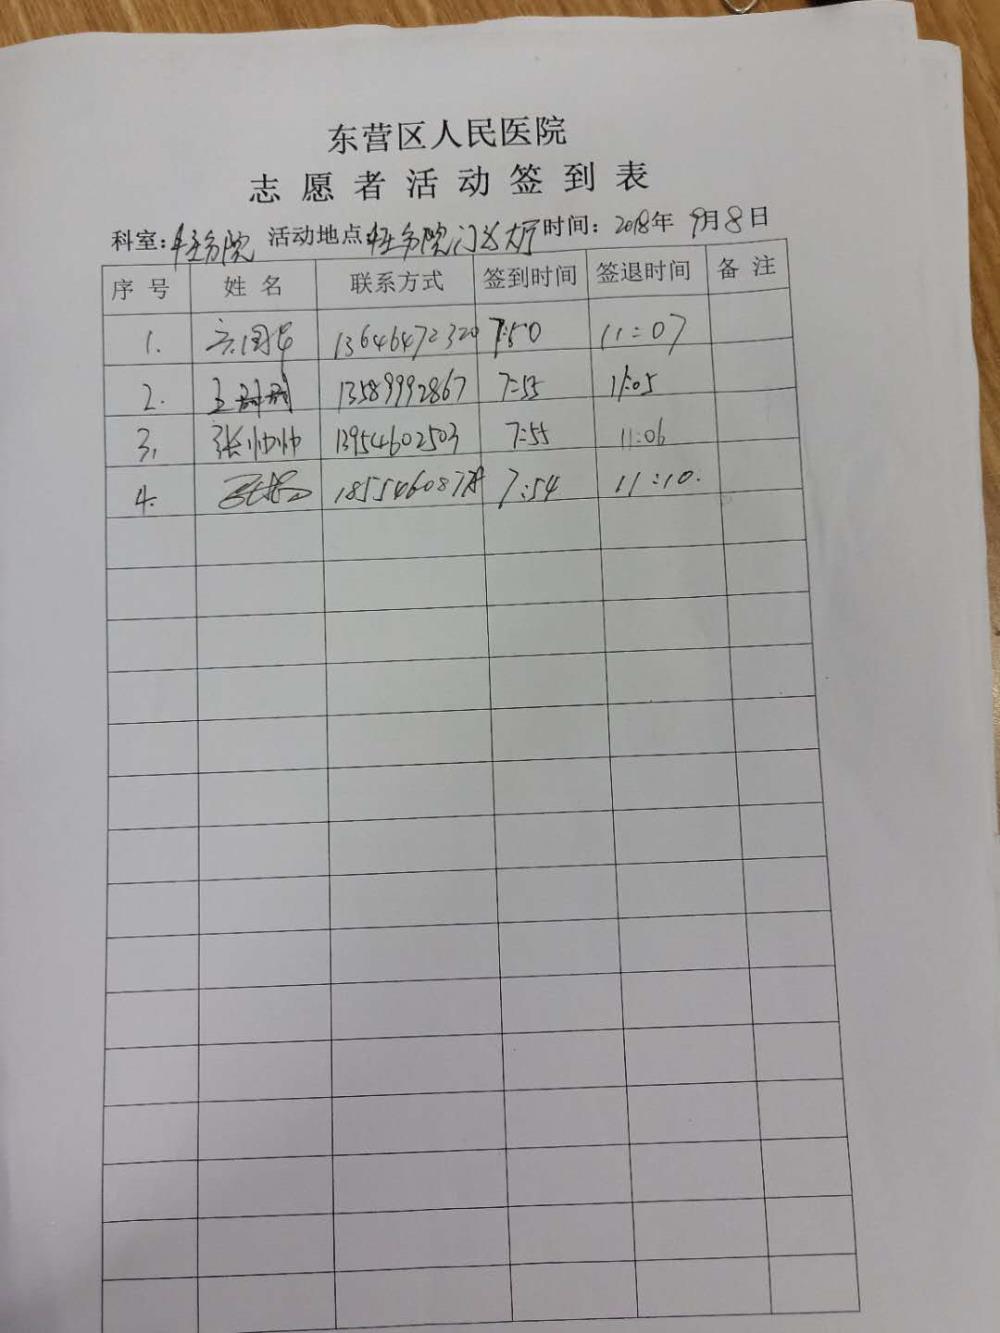 东营区人民医院
志愿者活动签到表
科室: 活动地点 门诊大厅 时间: 2018年 9月8日
序号 姓名 联系方式 签到时间 签退时间 备注
1. 13646472320 7:50 11:07
2. 王 13589992867 7:55 11:05
3. 张帅帅 13954602503 7:55 11:06
4. 7:54 11:10.